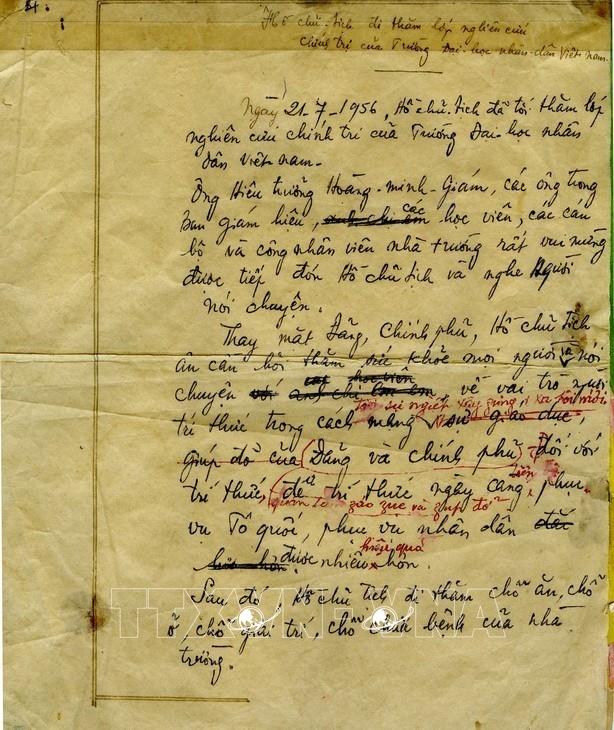 Hồ chủ-tịch đi thăm lớp nghiên cứu
chính trị của Trường Đại-học nhân-dân Việt-nam.
Ngày 21-7-1956, Hồ chủ tịch đã tới thăm lớp
nghiên cứu chính trị của Trường Đại-học nhân
dân Việt-nam.
Ông Hiệu trưởng Hoàng-minh-Giám, các ông trong
ban giám hiệu, các học viên, các cán
bộ và công nhân viên nhà trường rất vui mừng
được tiếp đón Hồ chủ tịch và nghe Người
nói chuyện.
Thay mặt Đảng, Chính phủ, Hồ chủ tịch
ân cần hỏi thăm sức khỏe mọi người và nói
chuyện với anh chị em về vai trò người
tới sự nghiệp xây dựng xã hội mới
trí thức trong cách mạng, sự giáo dục,
giúp đỡ của Đảng và chính phủ đối với
trí thức, để trí thức ngày càng tiến, phục
quan tâm giáo dục và giúp đỡ
vụ Tổ quốc, phục vụ nhân dân
hiệu quả
được nhiều hơn.
Sau đó, Hồ chủ tịch đi thăm chỗ ăn, chỗ
ở, chỗ giải trí, chỗ chữa bệnh của nhà
trường.
TTXVN
VNA